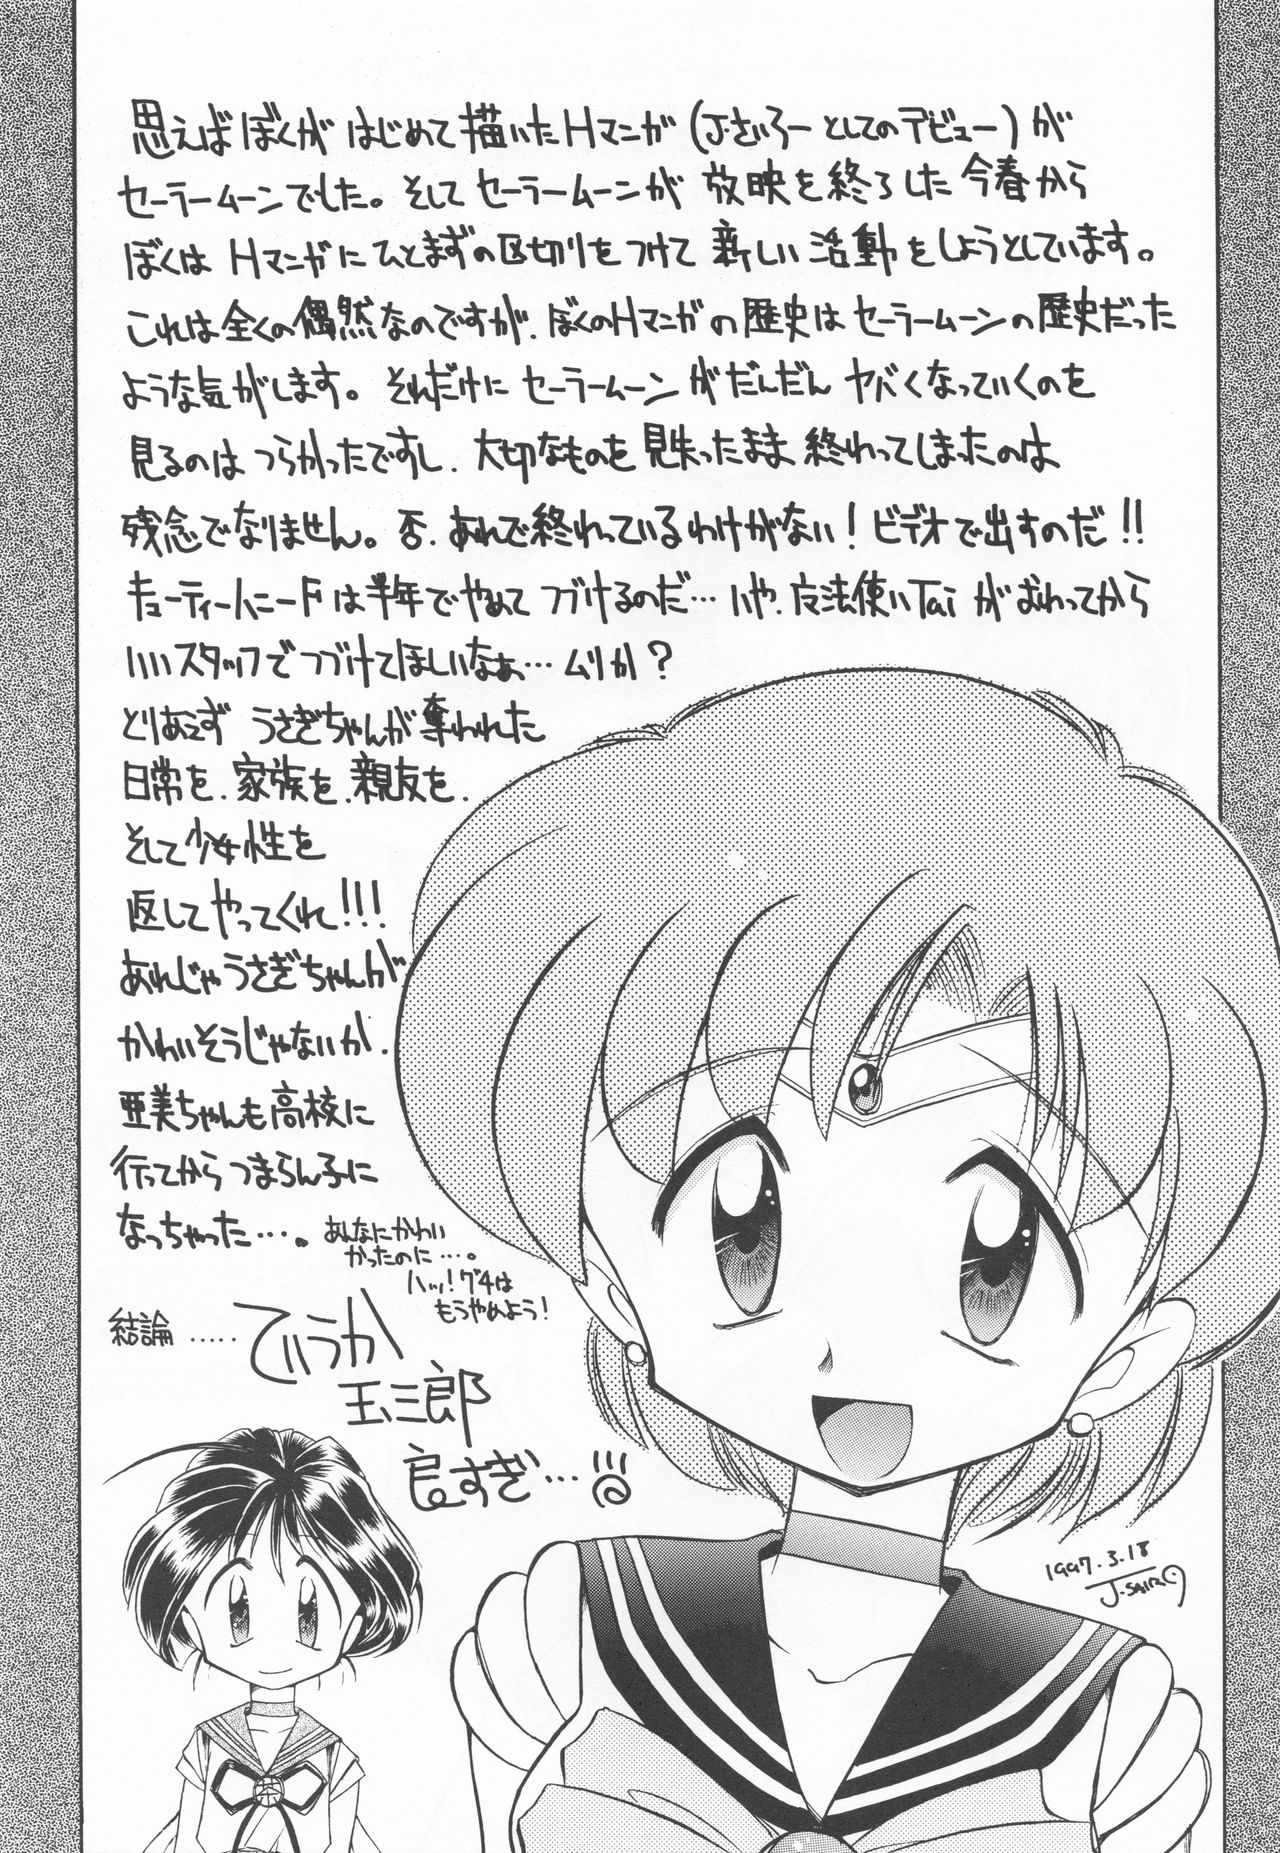 思えばぼくがはじめて描いたHマンガ(J・さいろーとしてのデビュー)が
セーラームーンでした。そしてセーラームーンが放映を終了した今春から
ぼくはHマンガにひとまずの区切りをつけて新しい活動をしようとしています。
これは全くの偶然なのですが、ぼくのHマンガの歴史はセーラームーンの歴史だった
ような気がします。それだけにセーラームーンがだんだんヤバくなっていくのを
見るのはつらかったですし、大切なものを見失ったまま終わってしまったのは
残念でなりません。否、あれで終れているわけがない!ビデオで出すのだ!!
キューティーハニーFは半年でやめてつづけるのだ…いや、魔法使いTaiがおわってから
いいスタッフでつづけてほしいなぁ…ムリか?
とりあえずうさぎちゃんが奪われた
日常を、家族を、親友を、
そして少女性を
返してやってくれ!!!
あれじゃうさぎちゃんが
かわいそうじゃないか、
亜美ちゃんも高校に
行ってからつまらん子に
なっちゃった…。
あんなにかわい
かったのに…。
ハッ!グチは
もうやめよう!
結論……てゆうか
玉三郎
良すぎ…
1997.3.18
J.SAIRO